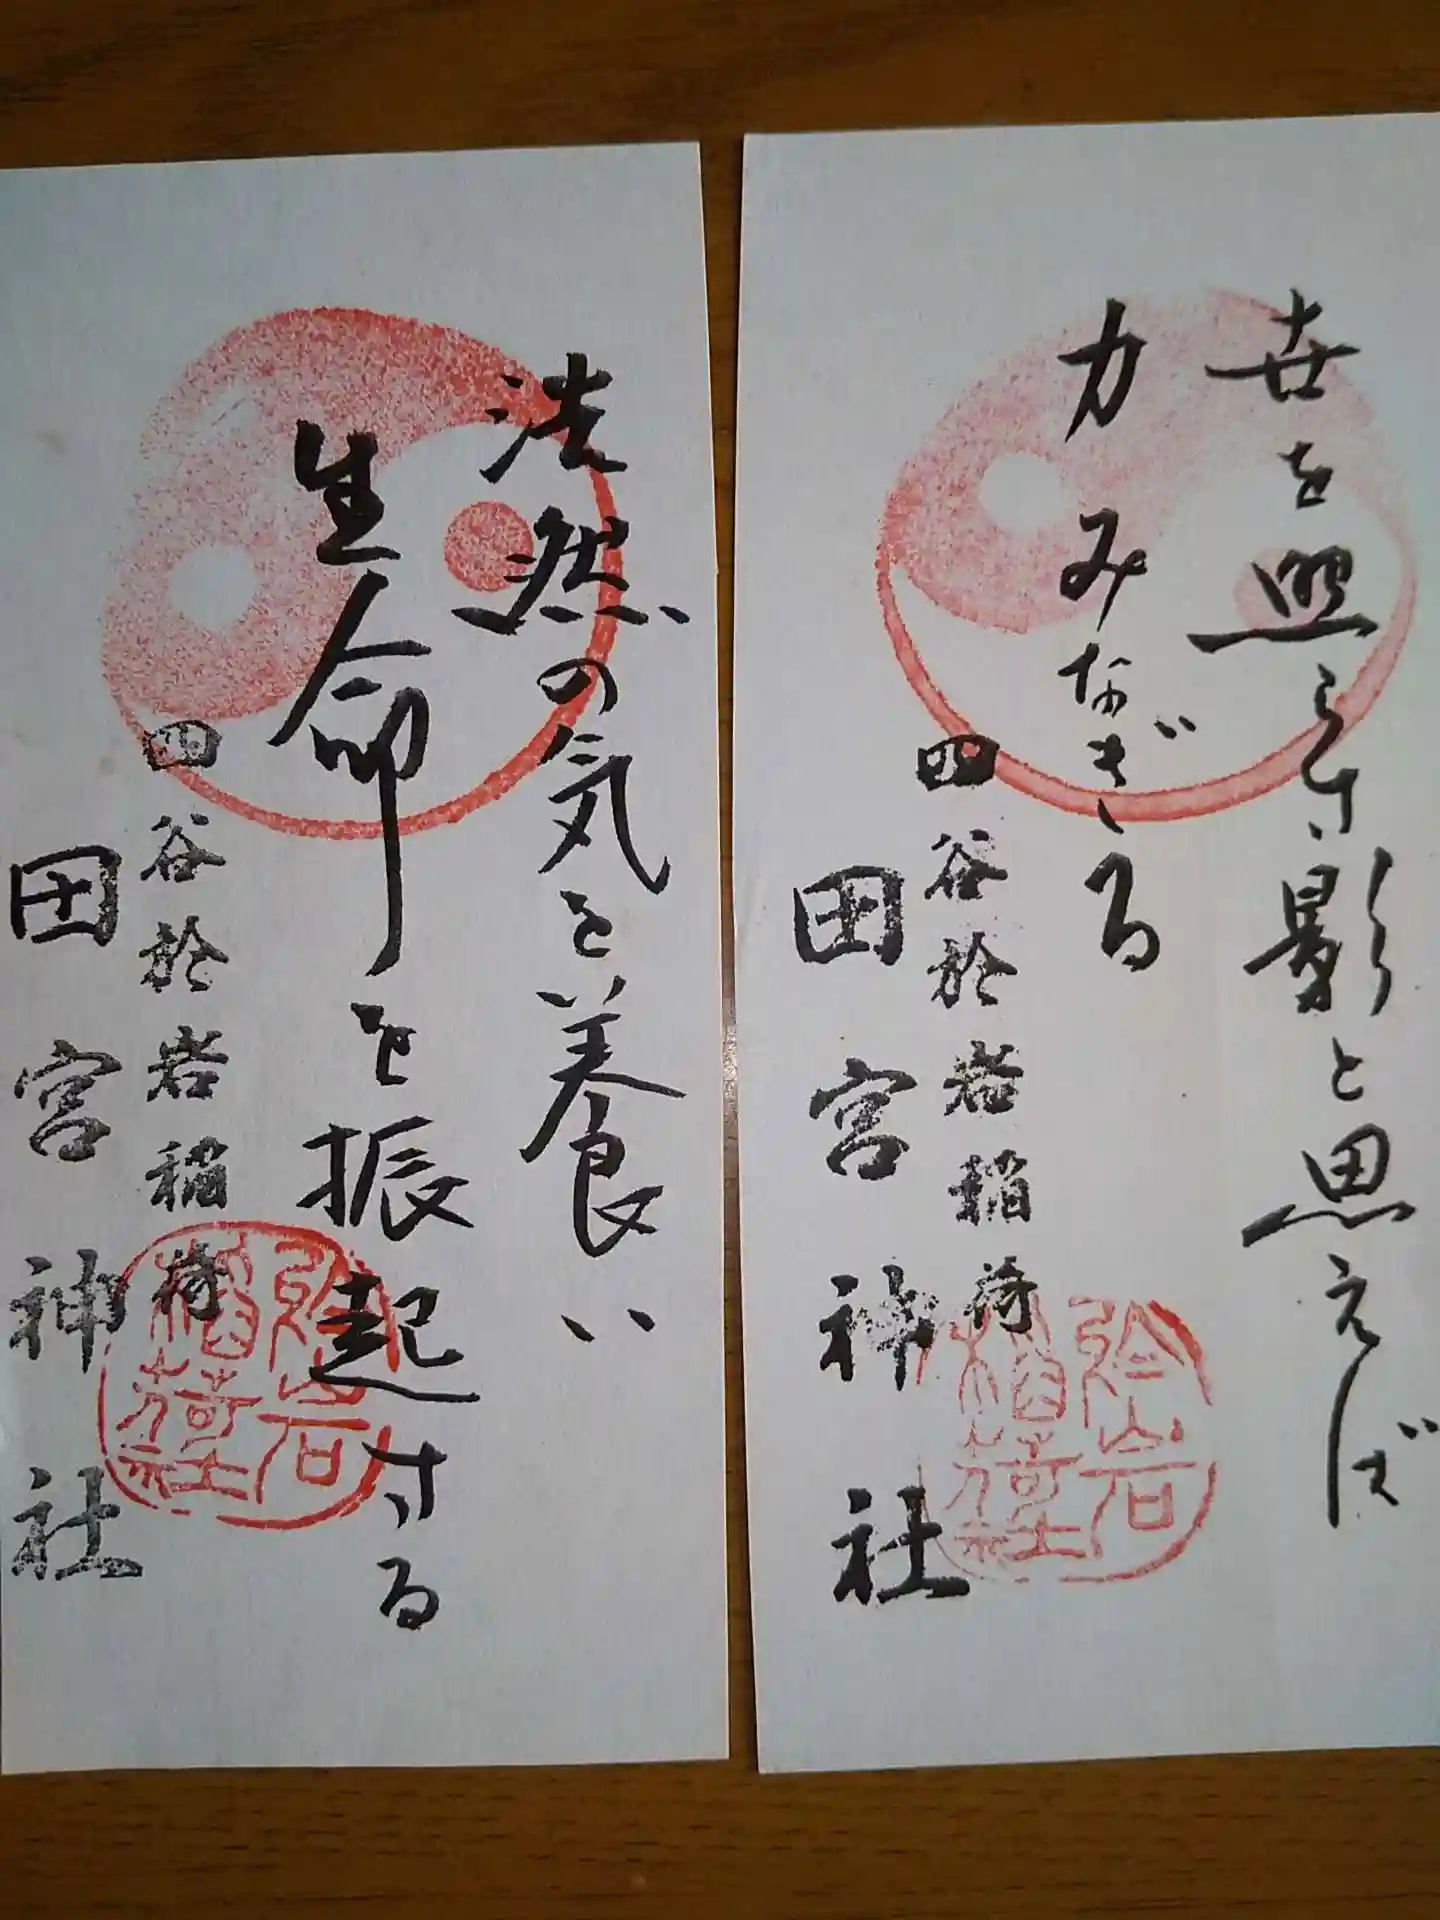 世を照らす影と思えば
力みなぎる
四谷於岩稲荷
田宮神社
浩然の気を養い
生命を振起する
四谷於岩稲荷
田宮神社